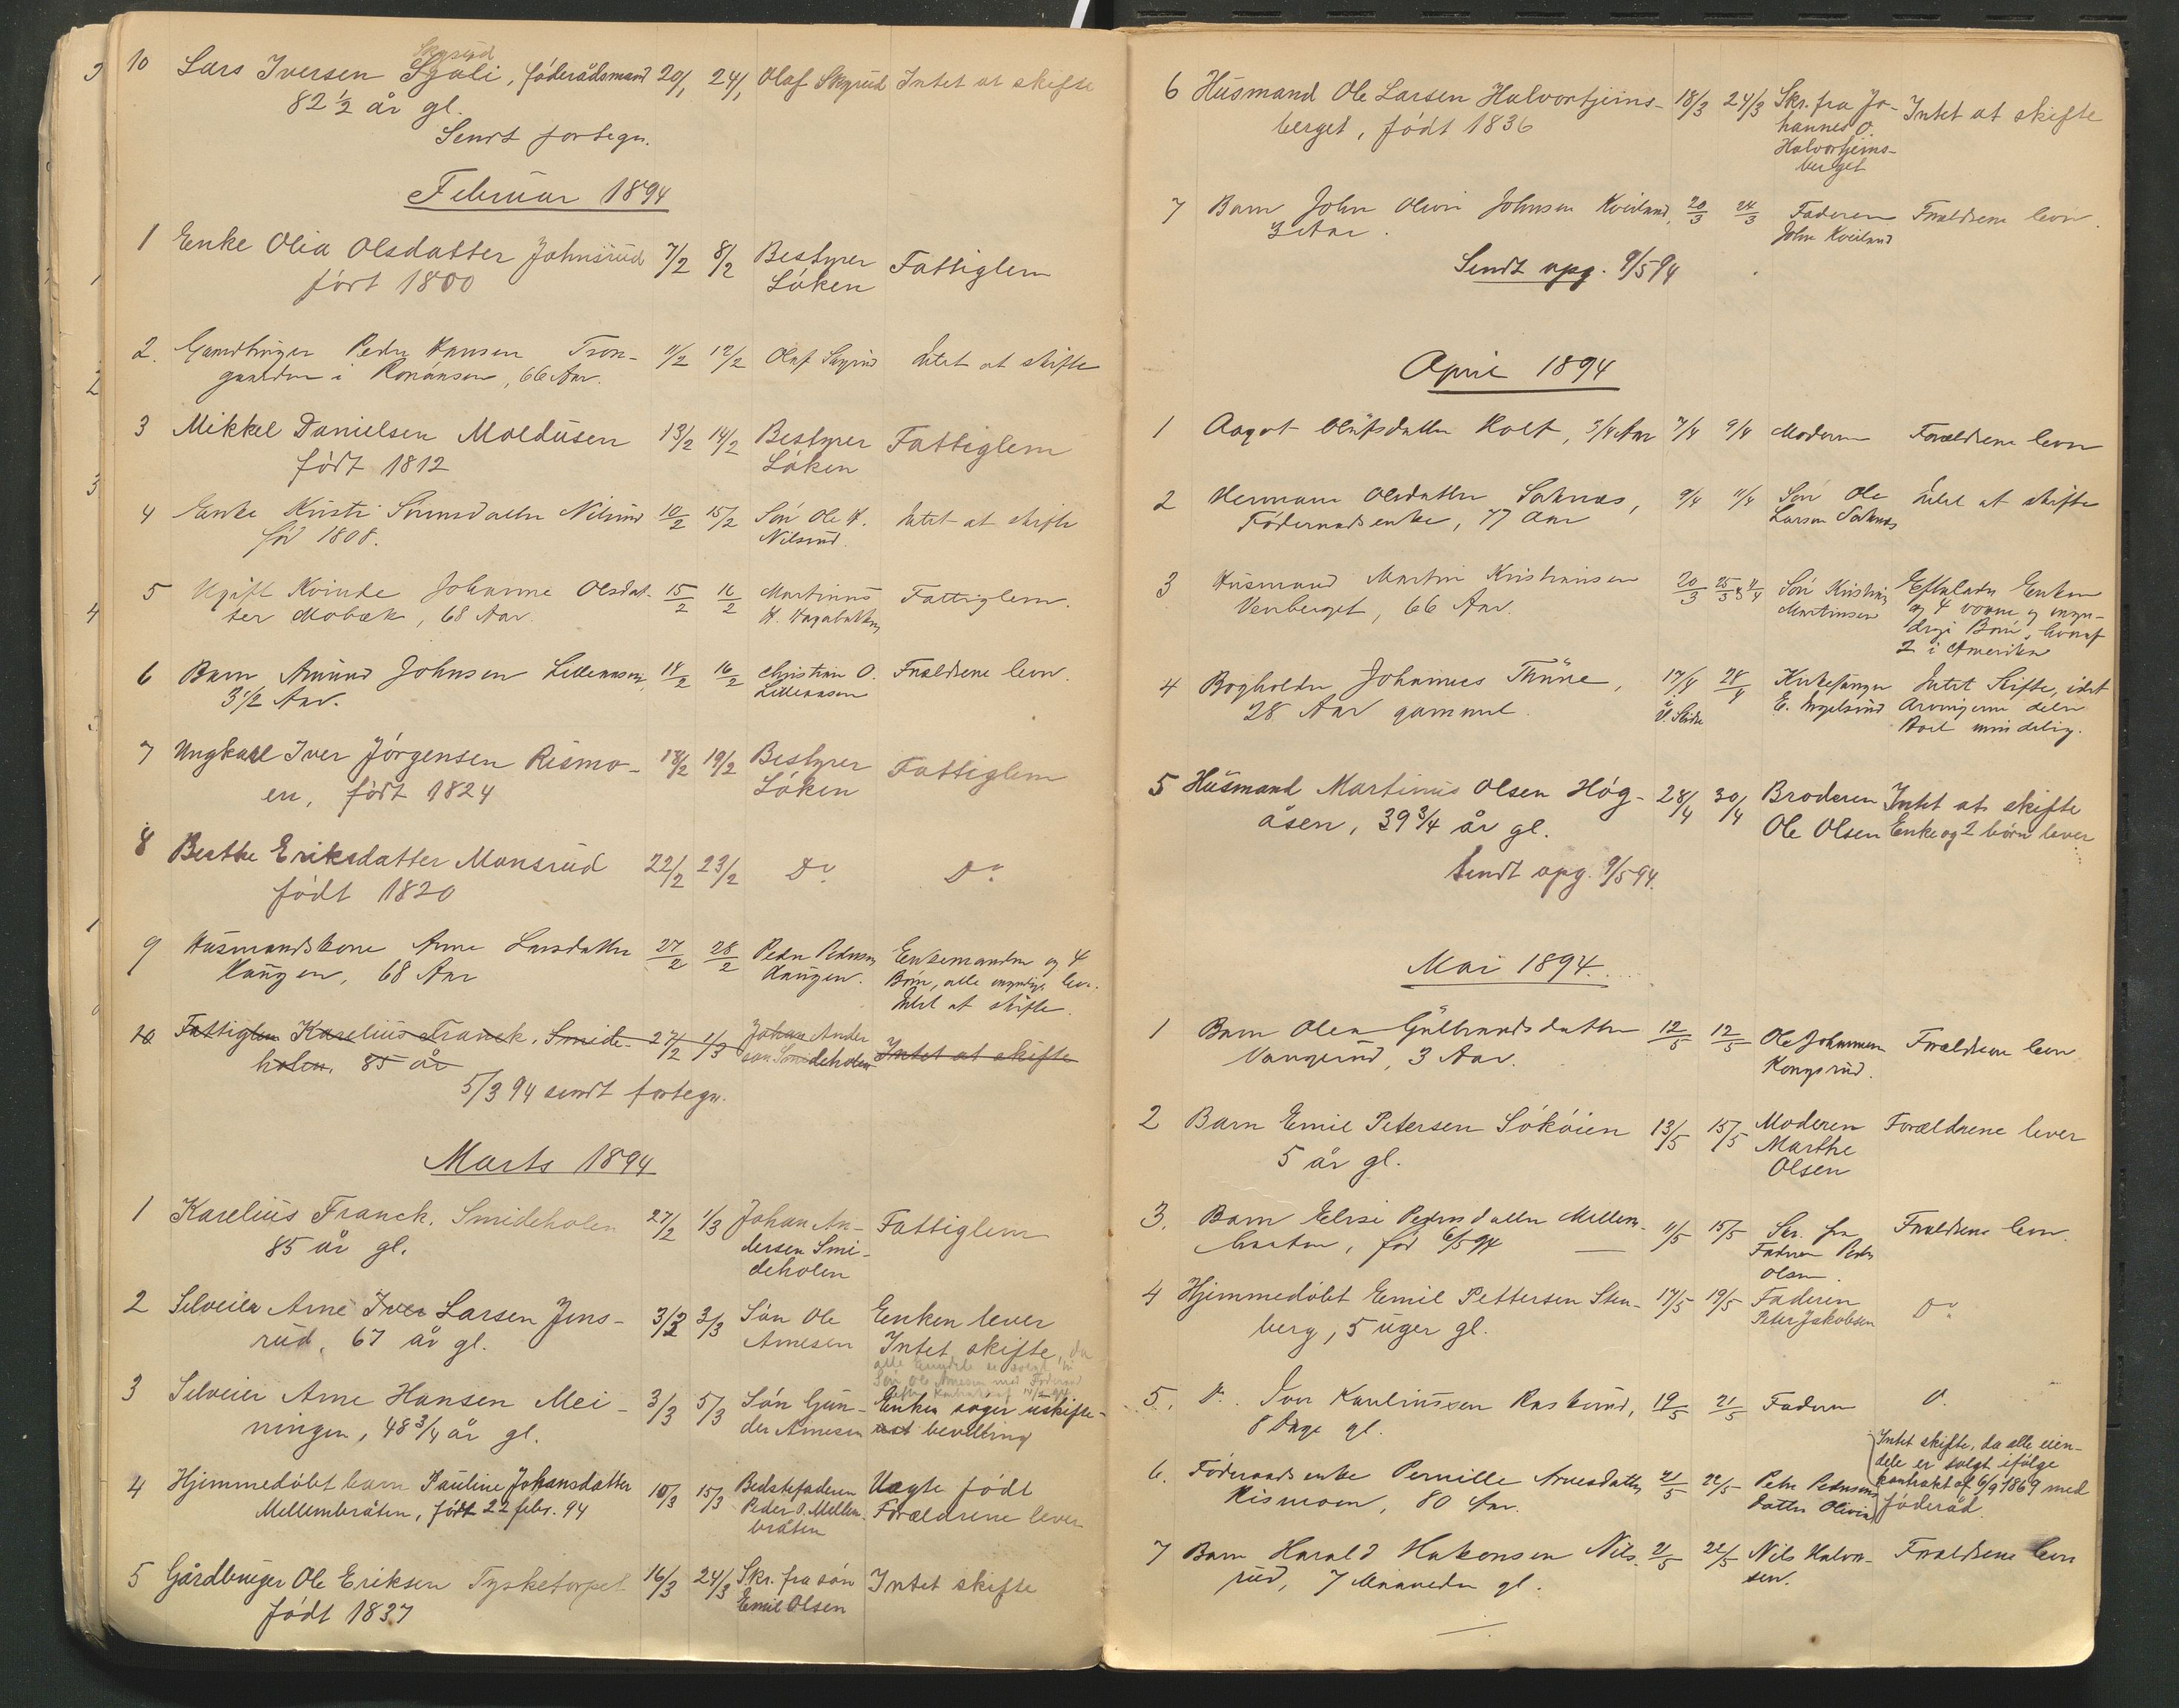 10 Lars Iversen Sgali, föderådsmand 20/1 24/1 Olaf Skgrud Intet at skifte
Skgrud
82 1/2 år gl.
Sendt fortegn.
Februar 1894
1 Enke Olia Olsdatter Johnsrud 7/2 8/2 Bestyrer Fattiglem
fört 1800 Löken
2. Gaardbruger Peder Hansen 11/2 12/2 Olaf Intet at skifte
i 66 Aar.
3 Mikkel Danielsen Moldusen 13/2 14/2 Bestyrer Fattiglem
födt 1812 Löken
4 Enke Kirsti Nilsrud 10/2 15/2 Sön Ole H. Intet at skifte
fød 1808. Nilsrud.
5 Ugift Kvinde Johanne Olsdat- 15/2 16/2 Martinus Fattiglem.
ter Mobæk, 68 Aar. H. Hagabakken
6 Barn Amund Johnsen Lilleaasen, 14/2 16/2 Christian O. Forældrene lever.
3 1/2 Aar. Lilleaasen
7 Ungkarl Iver Jörgensen Rismo- 18/2 19/2 Bestyrer Fattiglem
en, födt 1824 Löken
8 Berthe Eriksdatter Monsrud 22/2 23/2 Do Do
födt 1820
9 Husmandskone Anne Larsdatter 27/2 28/2 Peder Pedersen Enkemanden og 4
Haugen, 68 Aar Haugen. Børn, alle myndige lever.
Intet at skifte.
10 Fattiglem Karelius Franck. Smide- 27/2 1/3 Johan Ander Intet at skifte
holen. 85 år sen Smideholen
5/3 94 sendt fortegn.
Marts 1894
1 Karelius Franck. Smideholen 27/2 1/3 Johan An- Fattiglem
85 år gl. dersen Smi-
deholen
2 Selveier Arne Iver Larsen Jens- 3/3 3/3 Sön Ole Enken lever
rud, 67 år gl. Arnesen Intet skifte, da
3 Selveier Arne Hansen Mei- 3/3 5/3 Sön Gun- Enken söger uskifte-
ningen, 48 3/4 år gl. der Arnesen bevilling
4 Hjemmedöbt barn Pauline Johansdatter 10/3 15/3 Bedstefaderen Uægte födt
Mellembråten, födt 22 febr. 94 Peder O. Mellem- Forældrene lever
bråten
5 Gårdbruger Ole Eriksen Tysketorpet 16/3 24/3 Skr. fra sön Intet skifte
födt 1837 Emil Olsen
6 Husmand Ole Larsen Halvortjerns- 18/3 24/3 Skr. fra Jo- Intet at skifte
berget, födt 1836 hannes O.
Halvortjerns-
berget
7 Barn John Olern Johnsen Kveiland, 20/3 24/3 Faderen Forældrene lever.
3 Aar. John Kveiland
Sendt opg. 9/5 94
April 1894
1 Aagot Olufsdatter Holt, 3/4 Aar 7/4 9/4 Moderen Forældrene lever
2 Olsdatter Saknæs, 9/4 11/4 Søn Ole Intet at skifte
Föderaadsenke, 77 Aar Larsen Saknæs
3 Husmand Martin Kristiansen 20/3 25/3 & 4/4 Sön Kristian Efterlader Enken
Venberget, 66 Aar. Martinsen og 4 voxne og myn-
dige Börn, hvoraf
2 i Amerika
4 Bogholder Johannes Thune, 17/4 28/4 Kirkesanger Intet Skifte, idet
28 Aar gammel. E. Engelsrud Arvingerne deler
Boet mindelig.
5 Husmand Martinius Olsen Hög- 28/4 30/4 Broderen Intet at skifte
åsen, 39 3/4 år gl. Ole Olsen Enke og 2 börn lever
Sendt opg. 9/5 94.
Mai 1894.
1 Barn Olea Gulbrandsdatter 12/5 12/5 Ole Johannesen Forældrene lever
Vangerud, 3 Aar. Kongsrud.
2 Barn Emil Petersen Sököien 13/5 15/5 Moderen Forældrene lever
5 år gl. Marthe
Olsen
3. Barn Elise Pedersdatter Mellem- 11/5 15/5 Skr. fra Forældrene lever.
braaten, fød 6/5 94 Faderen Peder
Olsen.
4 Hjemmedöbt Emil Pettersen Sten- 17/5 19/5 Faderen Do
berg, 5 uger gl. Peter Jakobsen
5. Do. Iver Karelinssen Kasterud, 19/5 21/5 Faderen Do.
8 Dage gl.
6. Föderaadsenke Pernille Arnesdatter 21/5 22/5 Peder Pedersens Intet skifte, da alle eien-
Rismoen, 80 Aar. datter Olivia dele er solgt ifölge
kontrakt af 6/9 1869 med
föderåd.
7 Barn Harald Hakonsen Nils- 21/5 22/5 Nils Halvor- Forældrene lever
rud, 7 Maaneder gl. sen.